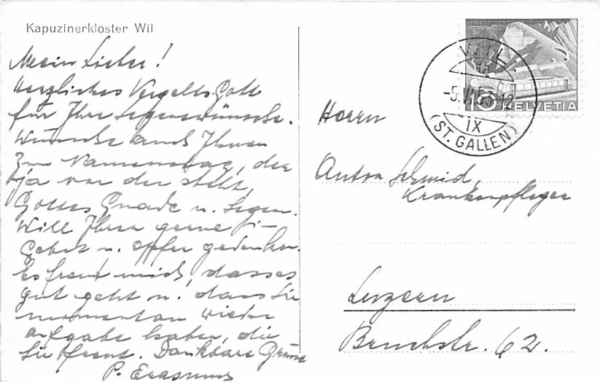 Kapuzinerkloster Wil
Mein Lieber!
Herzliches Vergelts Gott
für Ihre Segenswünsche.
Wünsche auch Ihnen
zum Namenstag, der
ja vor der steht,
Gottes Gnade u. Segen.
Will Ihrer gerne i.
Gebet u. Opfer gedenken.
Es freut mich, dass es
gut geht u. dass Sie
momentan wieder
aufgabe haben, die
Sie freut. Dankbare Grüsse
P. Erasmus
WIL
-5.VI.53-12
IX
(ST. GALLEN)
5 HELVETIA
Herrn
Anton Schmid,
Krankenpfleger
Luzern
Bruchstr. 62.